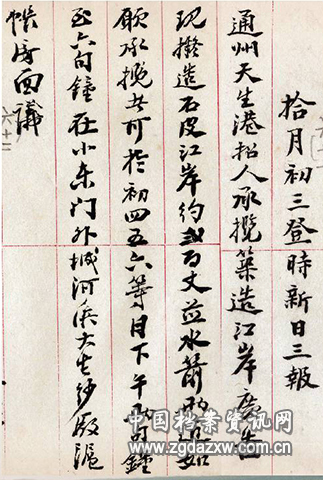 拾月初三登時新日三報
通州天生港招人承攬築造江岸廣告
現擬造石皮江岸約弍百丈並水箭兩道如
願承攬者可於初四五六等日下午兩句鐘
至六句鐘在小东门外城河浜大生紗廠滬
帳房面議
六十二
中国档案资讯网
www.zgdazxw.com.cn